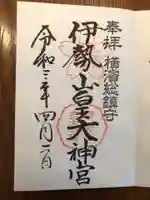 奉拝 横濱総鎮守
伊勢山皇大神宮
令和三年四月二日